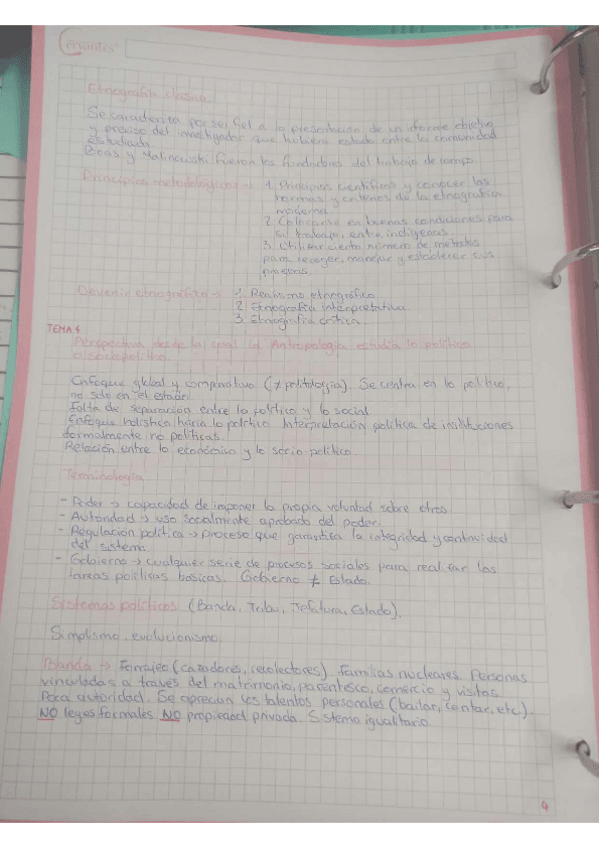 Cervantes
Etnografía clásica
Se caracteriza por ser fiel a la presentación de un informe objetivo
y preciso del investigador que hubiera estado entre la comunidad
estudiada.
Boas y Malinowski fueron los fundadores del trabajo de campo.
Principios metodológicos → 1. Principios científicos y conocer las
normas y criterios de la etnografía
moderna.
2. Colocarse en buenas condiciones para
su trabajo, entre indígenas.
3. Utilizar cierto número de métodos
para recoger, manejar y establecer sus
pruebas.
Devenir etnográfico → 1. Realismo etnográfico
2. Etnografía interpretativa.
3. Etnografía crítica.
TEMA 4
Perspectiva desde la cual la Antropología estudia lo político
o sociopolítico.
Enfoque global y comparativo (≠ politología). Se centra en lo político,
no solo en el estado.
Falta de separación entre lo político y lo social
Enfoque holístico hacia lo político. Interpretación política de instituciones
formalmente no políticas.
Relación entre lo económico y lo socio-político.
Terminología
- Poder → capacidad de imponer la propia voluntad sobre otros.
- Autoridad → uso socialmente aprobado del poder.
- Regulación política → proceso que garantiza la integridad y continuidad
del sistema.
- Gobierno → cualquier serie de procesos sociales para realizar las
tareas políticas básicas. Gobierno ≠ Estado.
Sistemas políticos (Banda, Tribu, Jefatura, Estado).
Simplismo, evolucionismo.
Banda → Forrajeo (cazadores, recolectores). Familias nucleares. Personas
vinculadas a través del matrimonio, parentesco, comercio y visitas.
Poca autoridad. Se aprecian los talentos personales (bailar, contar, etc).
NO leyes formales NO propiedad privada. Sistema igualitario.
4